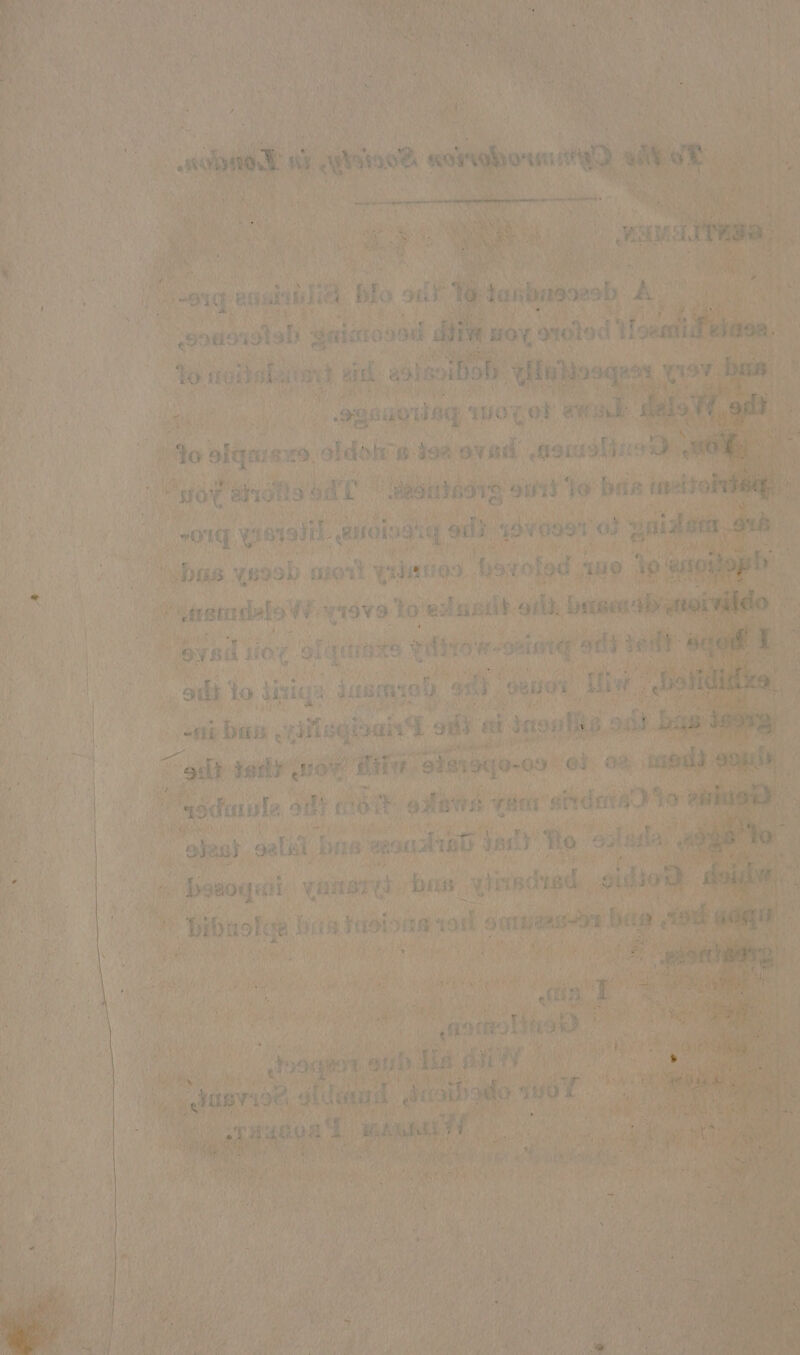 To the Cymmrodorion Society, in London.
GENTLEMEN,
A descendant of the old pre-
sents himself before you with becoming deference,
and very respectfully dedicates his translation of
the Welsh to your patronage.
You, Gentlemen, have set a noble example of
patriotism and of true greatness. The efforts you
are making to recover the precious, literary pro-
of our beloved country from decay and
oblivion, demand the thanks of every Welshman.
I hope that the praise-worthy example you have
exhibited, will rouse the dormant spirit of the
great and the affluent in the Principality, and in-
duce them so to co-operate with you, that the
Genius of Cambria may awake from the slumber
of ages, shake off that darkness and false taste
which Gothic barbarity and tyranny imposed
upon her, and re-assume her ancient and splendid
greatness.
I am,
Gentlemen,
With all due respect,
Your obedient, humble Servant,
WILLIAM PROBERT.